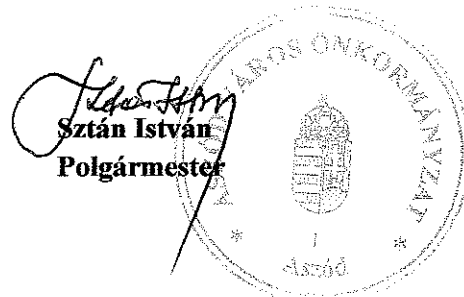 Sztán István
Polgármester
ASZÓD VÁROS ÖNKORMÁNYZAT
1
Aszód